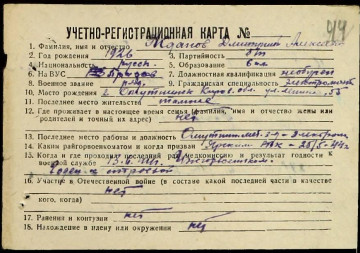 44
УЧЕТНО-РЕГИСТРАЦИОННАЯ КАРТА №
1. Фамилия, имя и отчество Жданов Дмитрий Алексе
2. Год рождения 1926 3. Партийность б/п
4. Национальность русск. 5. Образование 6 кл
6. На ВУС 7. Должностная квалификация
8. Военное звание ряд. 9. Гражданская специальность
10. Место рождения г. Омутнинск Киров. обл. ул. Ленина
11. Последнее место жительства
12. Где проживает в настоящее время семья (фамилия, имя и отчество жены или
родителей и точный их адрес) нет
13. Последнее место работы и должность
14. Каким райгорвоенкоматом и когда призван РВК - 44г.
15. Когда и где проходил последний раз медкомиссию и результат годности к
военной службе годен к строевой
16. Участие в Отечественной войне (в составе какой последней части в качестве
кого, когда) нет
17. Ранения и контузии нет
18. Нахождение в плену или окружении нет